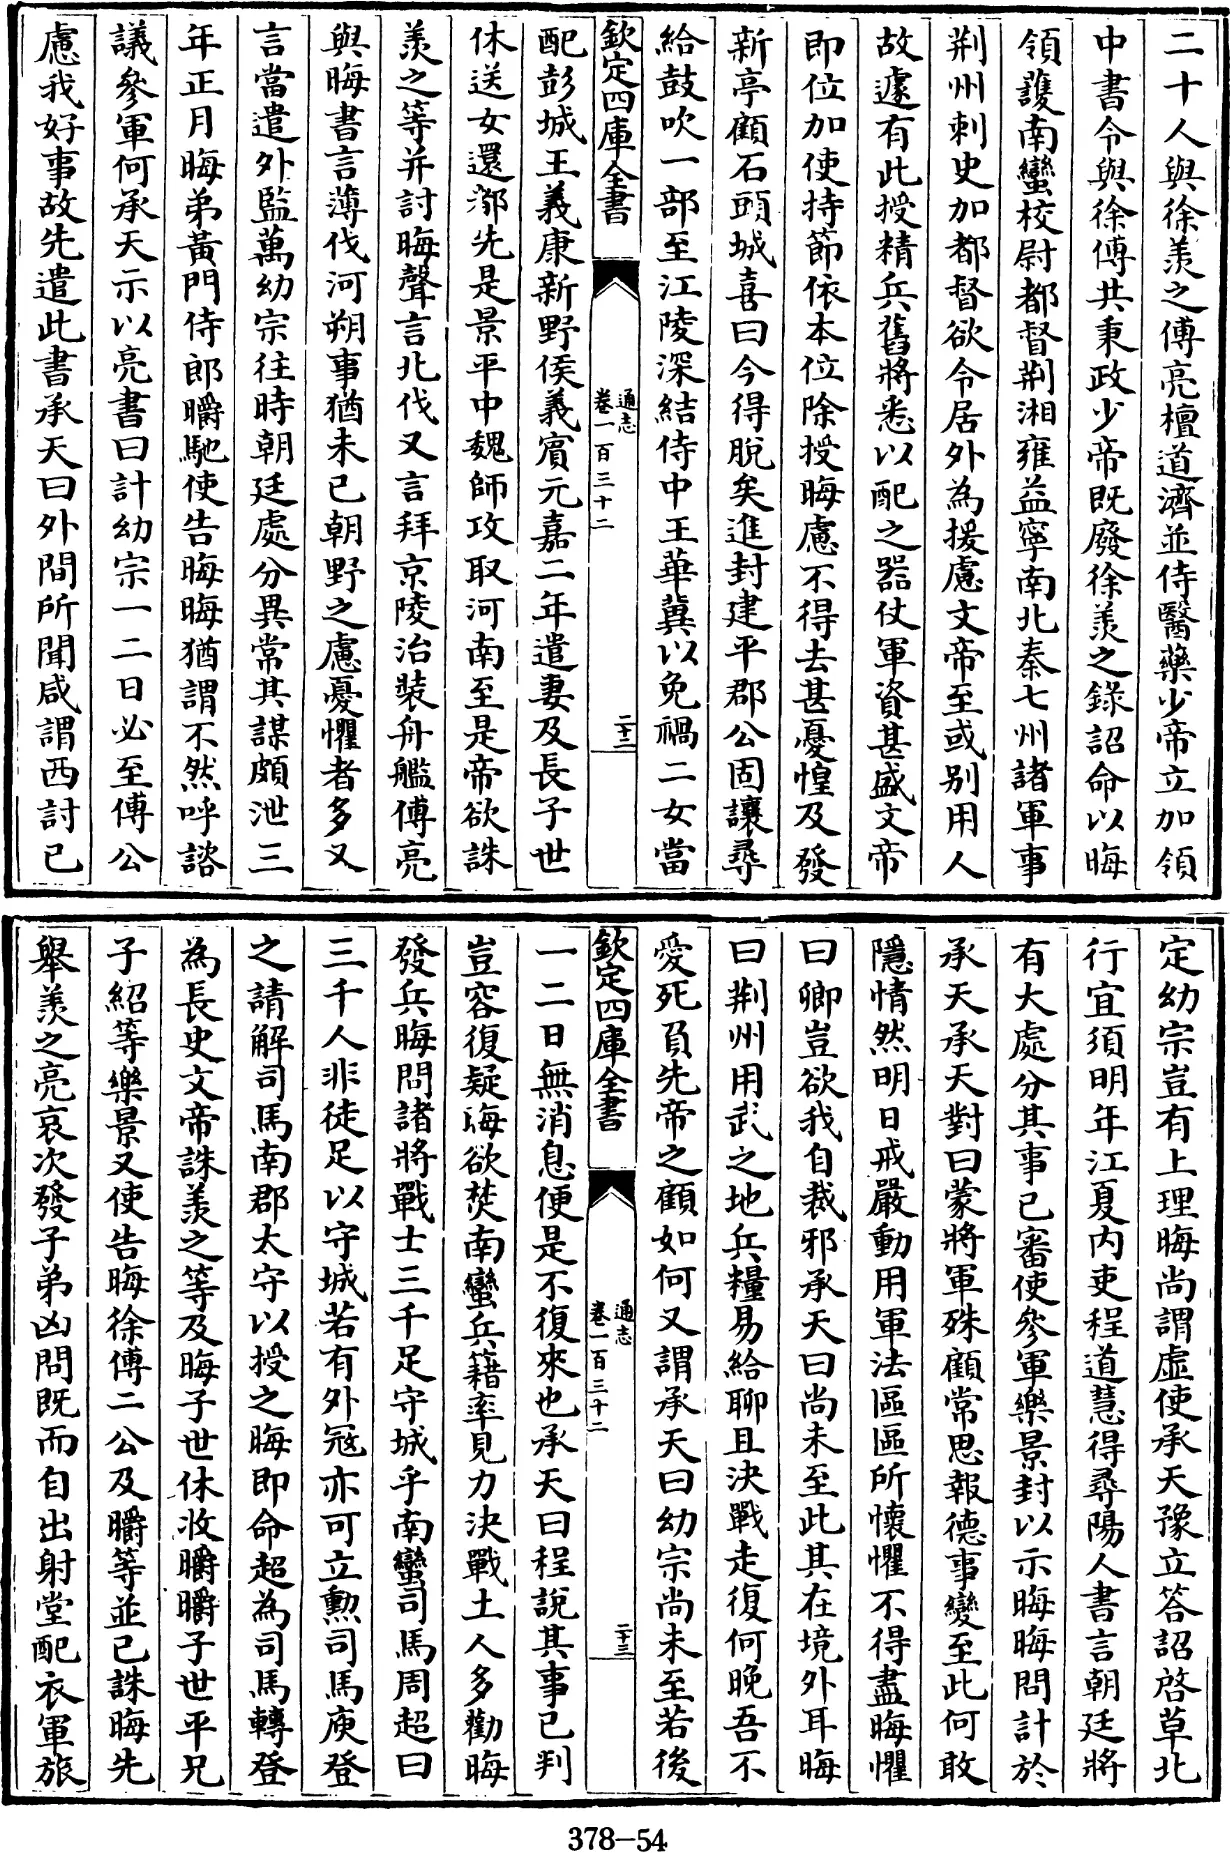 二十人與徐羨之傅亮檀道濟並侍醫藥少帝立加領
中書令與徐傅共秉政少帝既廢徐羨之錄詔命以晦
領護南蠻校尉都督荆湘雍益寧南北秦七州諸軍事
荆州刺史加都督欲令居外為援慮文帝至或别用人
故遽有此授精兵舊將悉以配之器仗軍資甚盛文帝
即位加使持節依本位除授晦慮不得去甚憂惶及發
新亭顧石頭城喜曰今得脫矣進封建平郡公固讓尋
給鼓吹一部至江陵深結侍中王華冀以免禍二女當
欽定四庫全書
通志
卷一百三十二
二十二
配彭城王義康新野侯義賓元嘉二年遣妻及長子世
休送女還都先是景平中魏師攻取河南至是帝欲誅
羨之等并討晦聲言北伐又言拜京陵治裝舟艦傅亮
與晦書言薄伐河朔事猶未已朝野之慮憂懼者多又
言當遣外監萬幼宗往時朝廷處分異常其謀頗泄三
年正月晦弟黃門侍郎㬭馳使告晦晦猶謂不然呼諮
議參軍何承天示以亮書曰計幼宗一二日必至傅公
慮我好事故先遣此書承天曰外間所聞咸謂西討已
定幼宗豈有上理晦尚謂虛使承天豫立答詔啓草北
行宜須明年江夏内史程道慧得尋陽人書言朝廷將
有大處分其事已審使參軍樂景封以示晦晦問計於
承天承天對曰蒙將軍殊顧常思報德事變至此何敢
隱情然明日戒嚴動用軍法區區所懷懼不得盡晦懼
曰卿豈欲我自裁邪承天曰尚未至此其在境外耳晦
曰荆州用武之地兵糧易給聊且決戰走復何晚吾不
愛死負先帝之顧如何又謂承天曰幼宗尚未至若後
欽定四庫全書
通志
卷一百三十二
二十三
一二日無消息便是不復來也承天曰程說其事已判
豈容復疑晦欲焚南蠻兵籍率見力決戰士人多勸晦
發兵晦問諸將戰士三千足守城乎南蠻司馬周超曰
三千人非徒足以守城若有外寇亦可立勲司馬庾登
之請解司馬南郡太守以授之晦即命超為司馬轉登
為長史文帝誅羨之等及晦子世休收㬭㬭子世平兄
子紹等樂景又使告晦徐傅二公及㬭等並已誅晦先
舉羨之亮哀次發子弟凶問既而自出射堂配衣軍旅
378-54